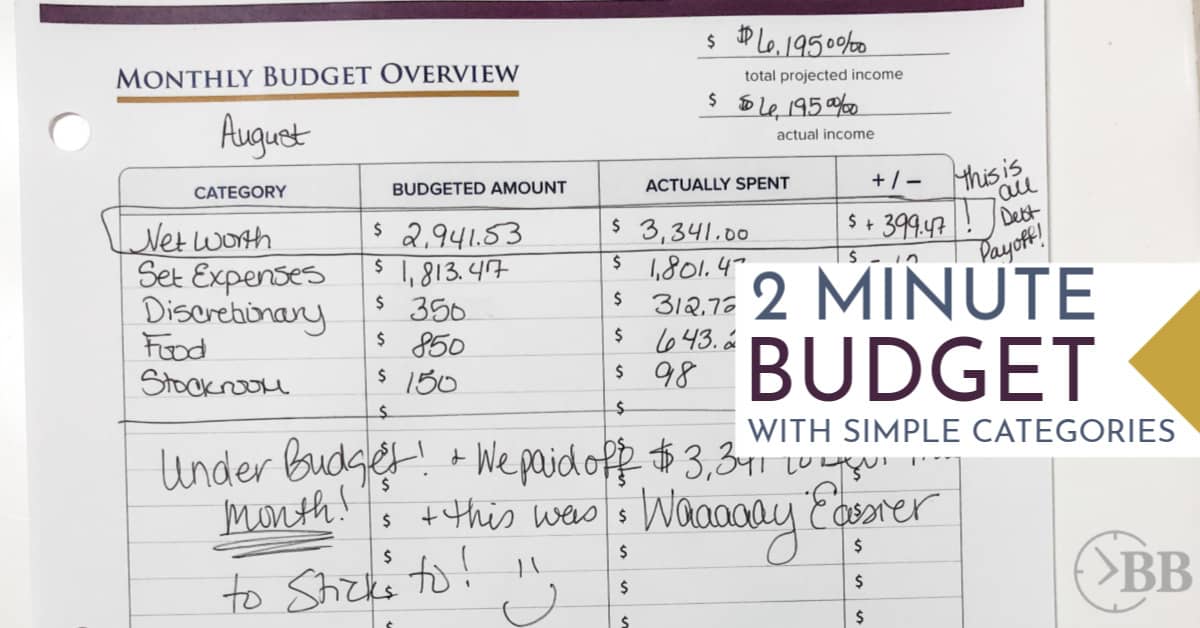 $ $6,195 00/00
total projected income
MONTHLY BUDGET OVERVIEW
$ $6,195 00/00
actual income
August
CATEGORY BUDGETED AMOUNT ACTUALLY SPENT + / −
This is all Debt Payoff!
Net Worth $ 2,941.53 $ 3,341.00 $ + 399.47 !
Set Expenses $ 1,813.47 $ 1,801.4 $
Discretionary $ 350 $ 312.72
Food $ 850 $ 643.
Stockroom $ 150 $ 98
$ $
2 MINUTE
BUDGET
WITH SIMPLE CATEGORIES
Under Budget! + We paid off $3,341 to
$ $ $
month! $ + this was $ Waaaaay Easier $
$ $ $
to Stick to! $ $ $
$ $ $
BB